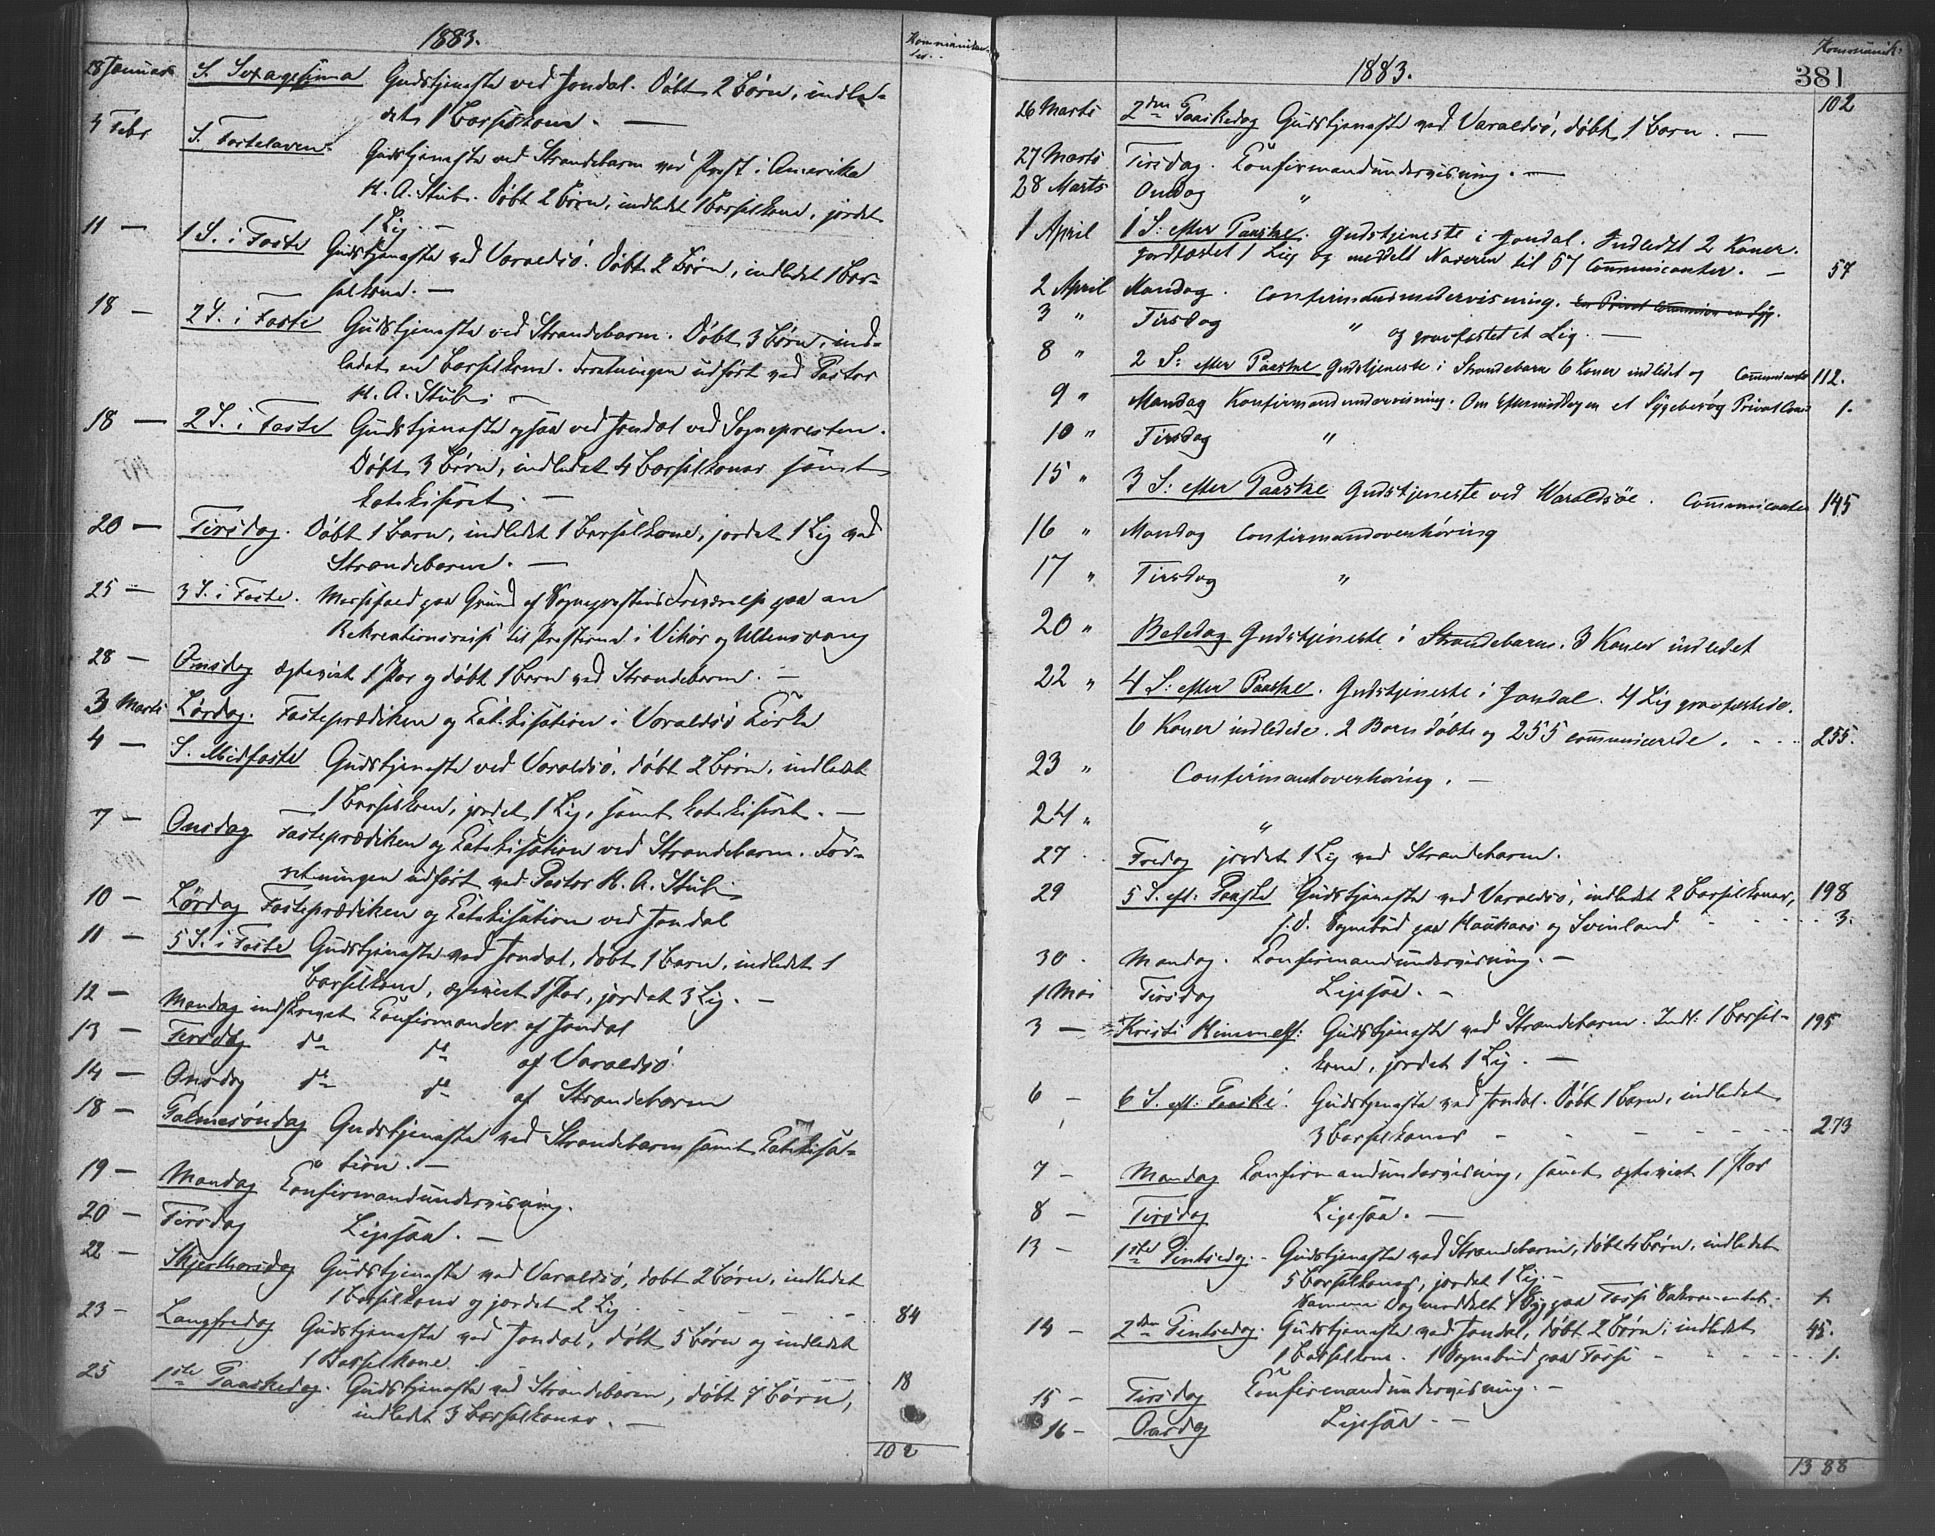 1883.
Kommunikan-
ter.
28 Januar S. Sexagesima Gudstjeneste ved Jondal. Døbt 2 Børn, indle-
det 1 Barselkone. —
4 Febr S. Fastelaven. Gudstjeneste ved Strandebarm ved Prest i Amerika
H. A. Stub. Døbt 2 Børn, indledet 1 Barselkone, jordet
1 Lig. —
11 — 1 S. i Faste Gudstjeneste ved Varaldsö. Døbt 2 Børn, indledet 1 Bar-
selkone. —
18 — 2 S. i Faste Gudstjeneste ved Strandebarm. Døbt 3 Børn, ind-
ledet en Barselkone. Forretningen udført ved Pastor
H. A. Stub. —
18 — 2 S. i Faste Gudstjeneste ogsaa ved Jondal ved Sognepresten.
Døbt 3 Børn, indledet 4 Barselkoner samt
katekiseret. —
20 — Tirsdag. Døbt 1 Barn, indledet 1 Barselkone, jordet 1 Lig ved
Strandebarm. —
25 — 3 S. i Faste. Messefald paa Grund af Sogneprestens Fraværelse paa en
Rekreationsreise til Presterne i Vikør og Ullensvang
28 — Onsdag ægteviet 1 Par og døbt 1 Barn ved Strandebarm. —
3 Marts Lørdag. Fasteprædiken og Katekisation i Varaldsö Kirke
4 — S. Midfaste Gudstjeneste ved Varaldsö, døbt 2 Børn, indledet
1 Barselkone, jordet 1 Lig, samt katekiseret. —
7 — Onsdag Fasteprædiken og Katekisation ved Strandebarm. For-
retningen udført ved Pastor H. A. Stub
10 — Lørdag Fasteprædiken og Katekisation ved Jondal
11 — 5 S. i Faste Gudstjeneste ved Jondal, døbt 1 Barn, indledet 1
Barselkone, ægteviet 1 Par, jordet 3 Lig. —
12 — Mandag indskrevet Konfirmander af Jondal
13 — Tirsdag do do af Varaldsö
14 — Onsdag do do af Strandebarm
18 — Palmesöndag Gudstjeneste ved Strandebarm samt Katekisa-
tion. —
19 — Mandag Konfirmandundervisning.
20 — Tirsdag Ligesaa. —
22 — Skjærthorsdag Gudstjeneste ved Varaldsö, døbt 2 Børn, indledet
1 Barselkone og jordet 2 Lig - - - - 84
23 — Langfredag Gudstjeneste ved Jondal, døbt 5 Børn og indledet
1 Barselkone.
25 1ste Paaskedag. Gudstjeneste ved Strandebarm, døbt 7 Børn, 18
indledet 3 Barselkoner. —
102
Kommunik:
1883.
381
26 Marts 2den Paaskedag Gudstjeneste ved Varaldsö, døbt 1 Barn. — 102
27 Marts Tirsdag. Konfirmandundervisning. —
28 Marts Onsdag "
1 April 1 S: efter Paaske. Gudstjeneste i Jondal. Indledet 2 Koner.
Jordfæstet 1 Lig og meddelt Naveren til 57 Communicanter. — 57
2 April Mandag. Confirmandundervisning. en Privat Communion en Syg.
3 " Tirsdag " og gravfæstet et Lig. —
8 " 2 S: efter Paaske Gudstjeneste i Strandebarm 6 Koner indledet og Communicanter 112.
9 " Mandag Konfirmandundervisning. Om Eftermiddagen et Sygebesøg Privat Com: 1.
10 " Tirsdag "
15 " 3 S: efter Paaske Gudstjeneste ved Waraldsöe. Communicanter 145
16 " Mandag Confirmandoverhöring
17 " Tirsdag "
20 " Bededag Gudstjeneste i Strandebarm. 3 Koner indledet
22 " 4 S: efter Paaske. Gudstjeneste i Jondal. 4 Lig gravfæstede.
6 Koner indledede. 2 Børn døbte og 255 communicerede. - - - 255.
23 " Confirmantoverhøring. —
24 " "
27 Fredag jordet 1 Lig ved Strandebarm.
29 5 S. eft: Paaske Gudstjeneste ved Varaldsö, indledet 2 Barselkoner, 198
s. D. Sognebud paa Haukaas og Svinland - - - - 3.
30 Mandag. Konfirmandundervisning. —
1 Mai Tirsdag Ligesaa. —
3 — Kristi Himmelf: Gudstjeneste ved Strandebarm. Indl: 1 Barsel- 195
kone, jordet 1 Lig. —
6 — 6 S. eft: Paaske. Gudstjeneste ved Jondal. Døbt 1 Barn, indledet
3 Barselkoner - - - - - 273
7 — Mandag Konfirmandundervisning, samt ægteviet 1 Par
8 — Tirsdag Ligesaa. —
13 — 1ste Pintsedag. Gudstjeneste ved Strandebarm, døbt 4 Børn, indledet
5 Barselkoner, jordet 1 Lig. —
Samme Dag meddelt 1 Syg paa Fosse Sakramentet. 1.
14 — 2den Pintsedag. Gudstjeneste ved Jondal, døbt 2 Børn, indledet 45.
1 Barselkone. 1 Sognebud paa Fosse - - - - 1.
15 — Tirsdag Konfirmandundervisning. —
16 — Onsdag Ligesaa. —
1388